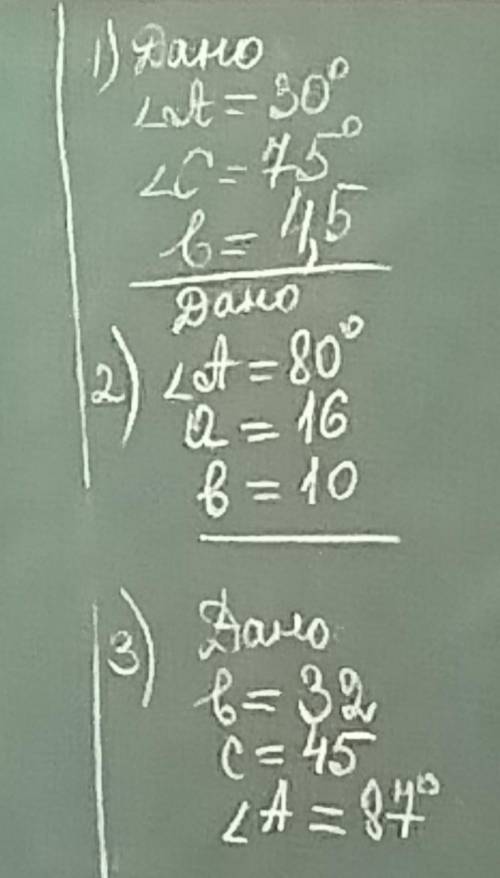 1) Дано
∠A = 30°
∠C = 75°
b = 4,5
Дано
2) ∠A = 80°
a = 16
b = 10
3) Дано
b = 32
c = 45
∠A = 87°